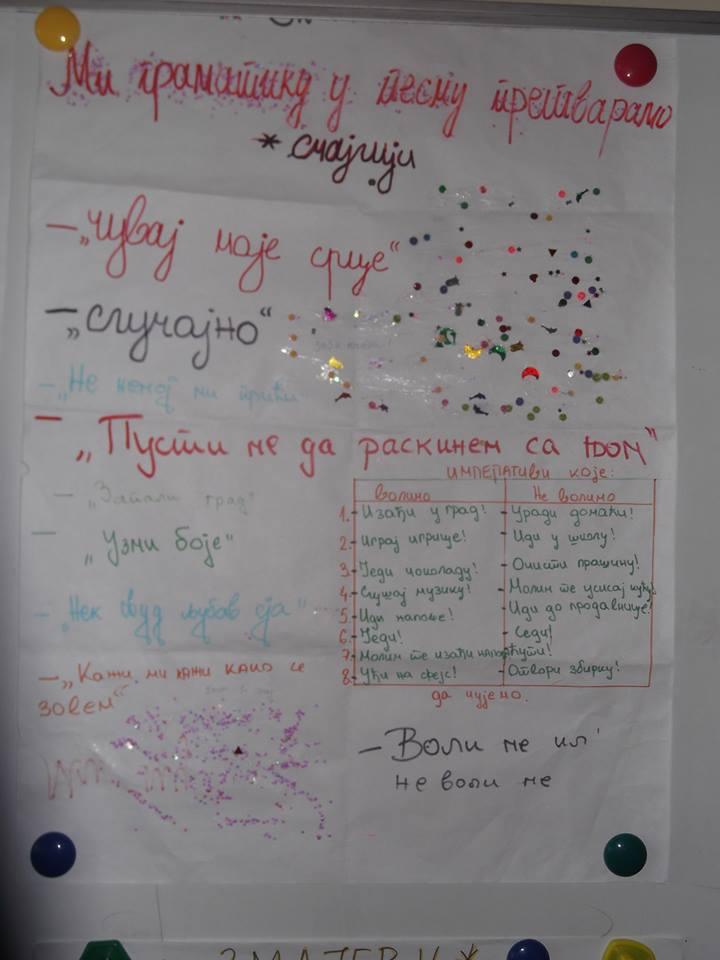 Ми граматику у песму претварамо
* случајџи
– „Чувај моје срце“
– „Случајно“
– „Не немој ми прићи
– „Пусти ме да раскинем са њом“
– „Запали град“
– „Узми боје“
– „Нек свуд љубав сја“
– „Кажи ми кажи како се
зовем“
ИМПЕРАТИВИ КОЈЕ:
волимо Не волимо
1. – Изађи у град! – Уради домаћи!
2. – Играј игрице! – Иди у школу!
3. – Једи чоколаду! – Очисти прашину!
4. – Слушај музику! – Молим те усисај кућу!
5. – Иди напоље! – Иди до продавнице!
6. – Једи! – Седи!
7. – Молим те изађи напоље – Ћути!
8. – Уђи на фејс! – Отвори збирку!
да чујемо.
– Воли ме ил'
не воли ме